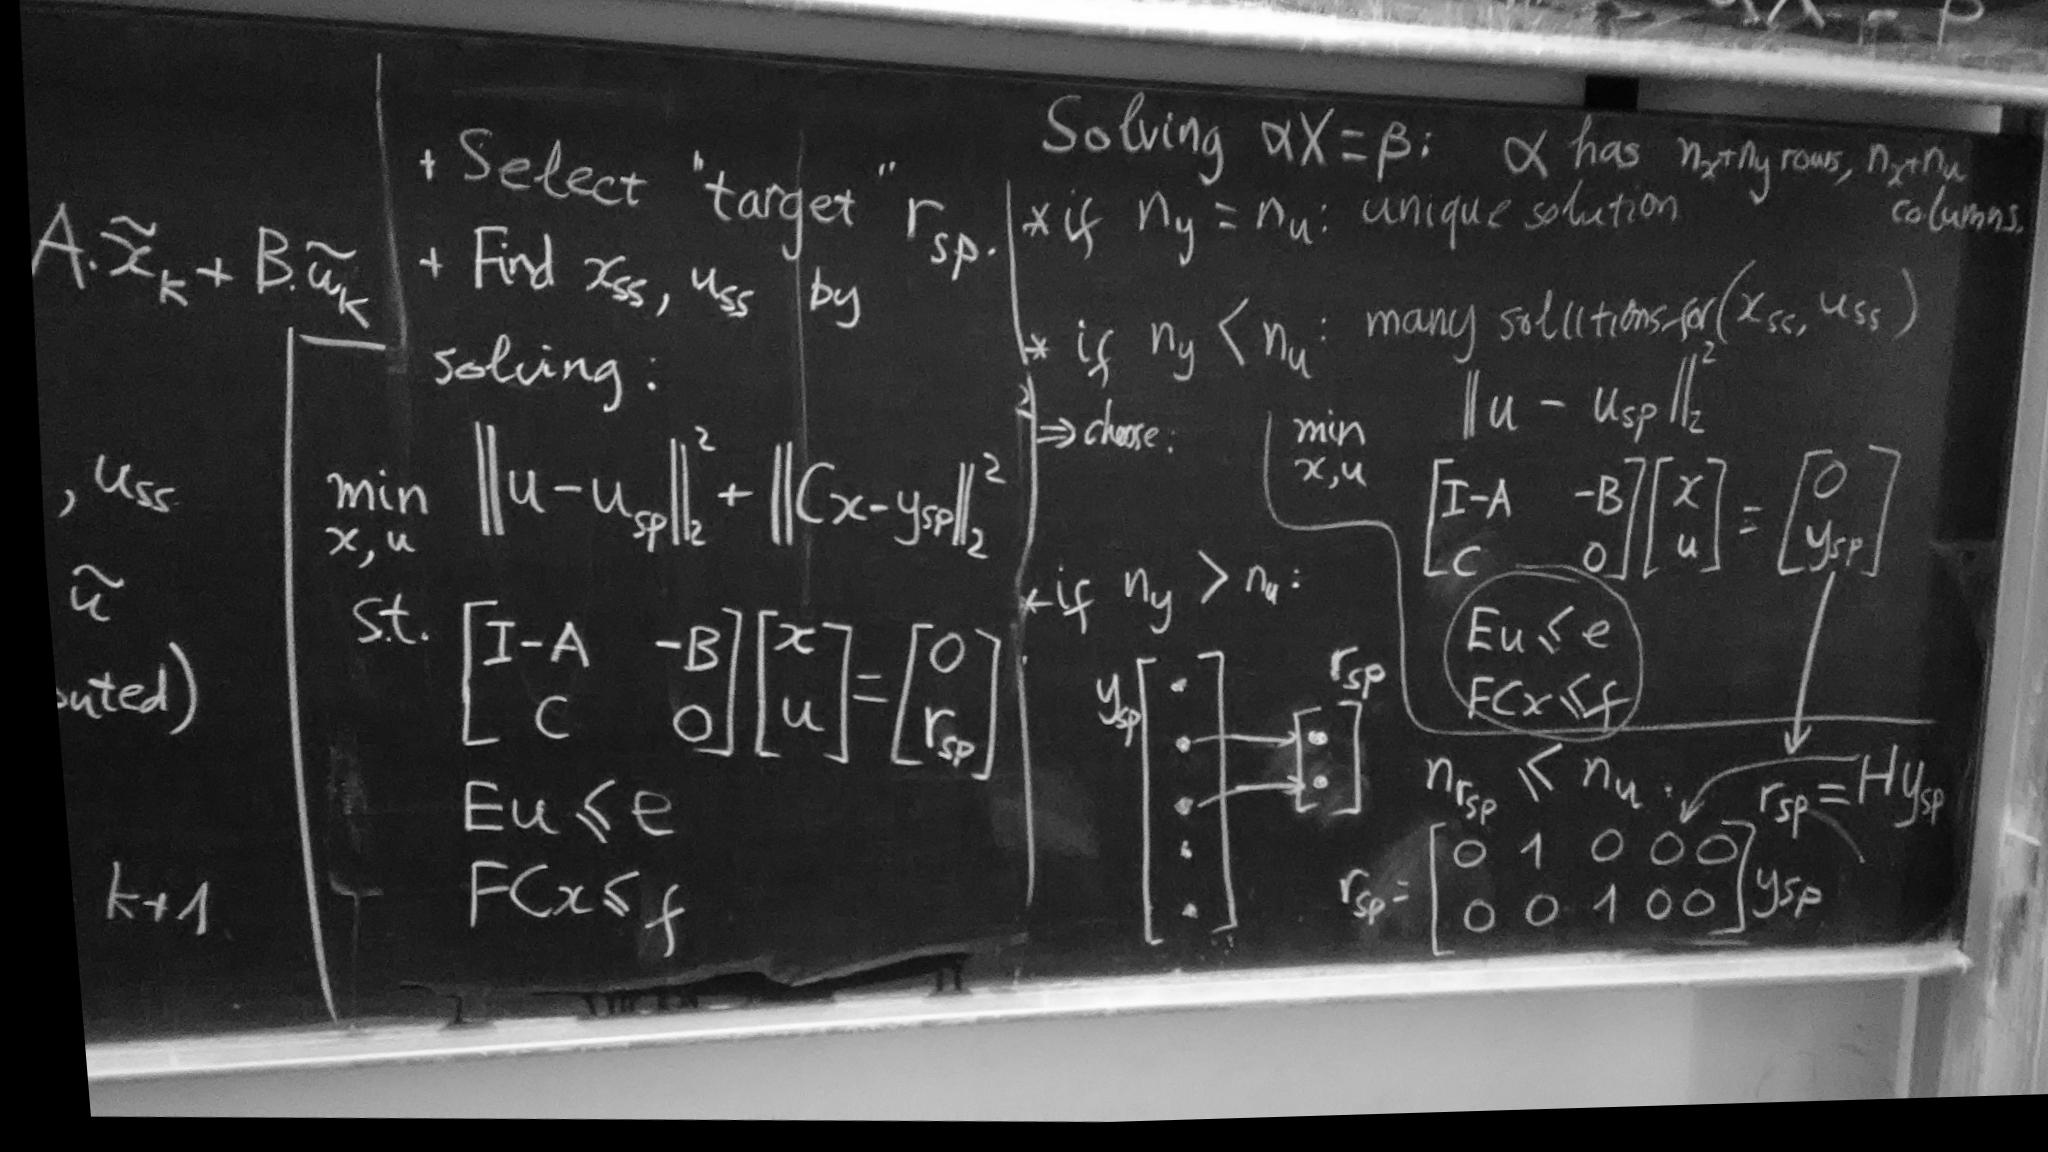 A.x̃_k + B.ũ_k
, u_ss
ũ
k+1
+ Select "target" r_sp.
+ Find x_ss, u_ss by
solving:
min x,u ‖u-u_sp‖₂² + ‖Cx-y_sp‖₂²
s.t. [I-A -B; C 0] [x; u] = [0; r_sp]
Eu ≤ e
FCx ≤ f
Solving αX=β: α has n_x+n_y rows, n_x+n_u columns.
* if n_y = n_u: unique solution
* if n_y < n_u: many solutions for (x_ss, u_ss)
⇒ choose: min x,u ‖u - u_sp‖₂²
[I-A -B; C 0] [x; u] = [0; y_sp]
Eu ≤ e
FCx ≤ f
* if n_y > n_u:
y_sp [ ] → r_sp [ ]
n_r_sp ≤ n_u. r_sp = Hy_sp
r_sp = [0 1 0 0 0; 0 0 1 0 0] y_sp